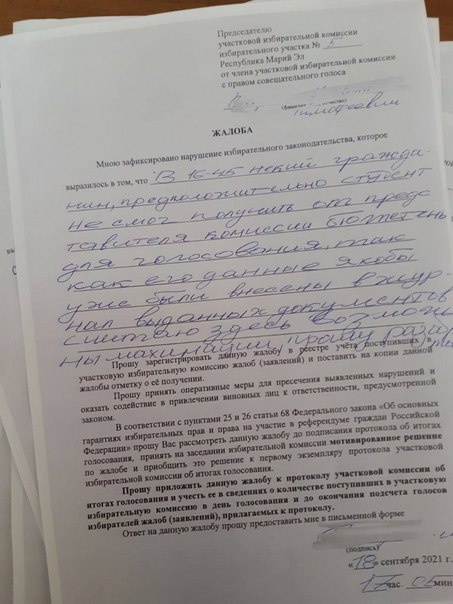 Председателю
участковой избирательной комиссии
избирательного участка № 5
Республика Марий Эл
от члена участковой избирательной комиссии
с правом совещательного голоса
Тимофеевич
ЖАЛОБА
Мною зафиксировано нарушение избирательного законодательства, которое
выразилось в том, что В 16-45 некий гражда-
нин, предположительно студент
не смог получить от предс
тавителя комиссии бюллетень
для голосования, так
как его данные якобы
уже были внесены в жур-
нал выданных документов
Считаю здесь возмож
ны махинации, прошу разо
Прошу зарегистрировать данную жалобу в реестре учёта поступивших в
участковую избирательную комиссию жалоб (заявлений) и поставить на копии данной
жалобы отметку о её получении.
Прошу принять оперативные меры для пресечения выявленных нарушений и
оказать содействие в привлечении виновных лиц к ответственности, предусмотренной
законом.
В соответствии с пунктами 25 и 26 статьи 68 Федерального закона «Об основных
гарантиях избирательных прав и права на участие в референдуме граждан Российской
Федерации» прошу Вас рассмотреть данную жалобу до подписания протокола об итогах
голосования, принять на заседании избирательной комиссии мотивированное решение
по жалобе и приобщить это решение к первому экземпляру протокола участковой
избирательной комиссии об итогах голосования.
Прошу приложить данную жалобу к протоколу участковой комиссии об
итогах голосования и учесть ее в сведениях о количестве поступивших в участковую
избирательную комиссию в день голосования и до окончания подсчета голосов
избирателей жалоб (заявлений), прилагаемых к протоколу.
Ответ на данную жалобу прошу предоставить мне в письменной форме
(подпись)
«18» сентября 2021 г.
17 час. 05 мин